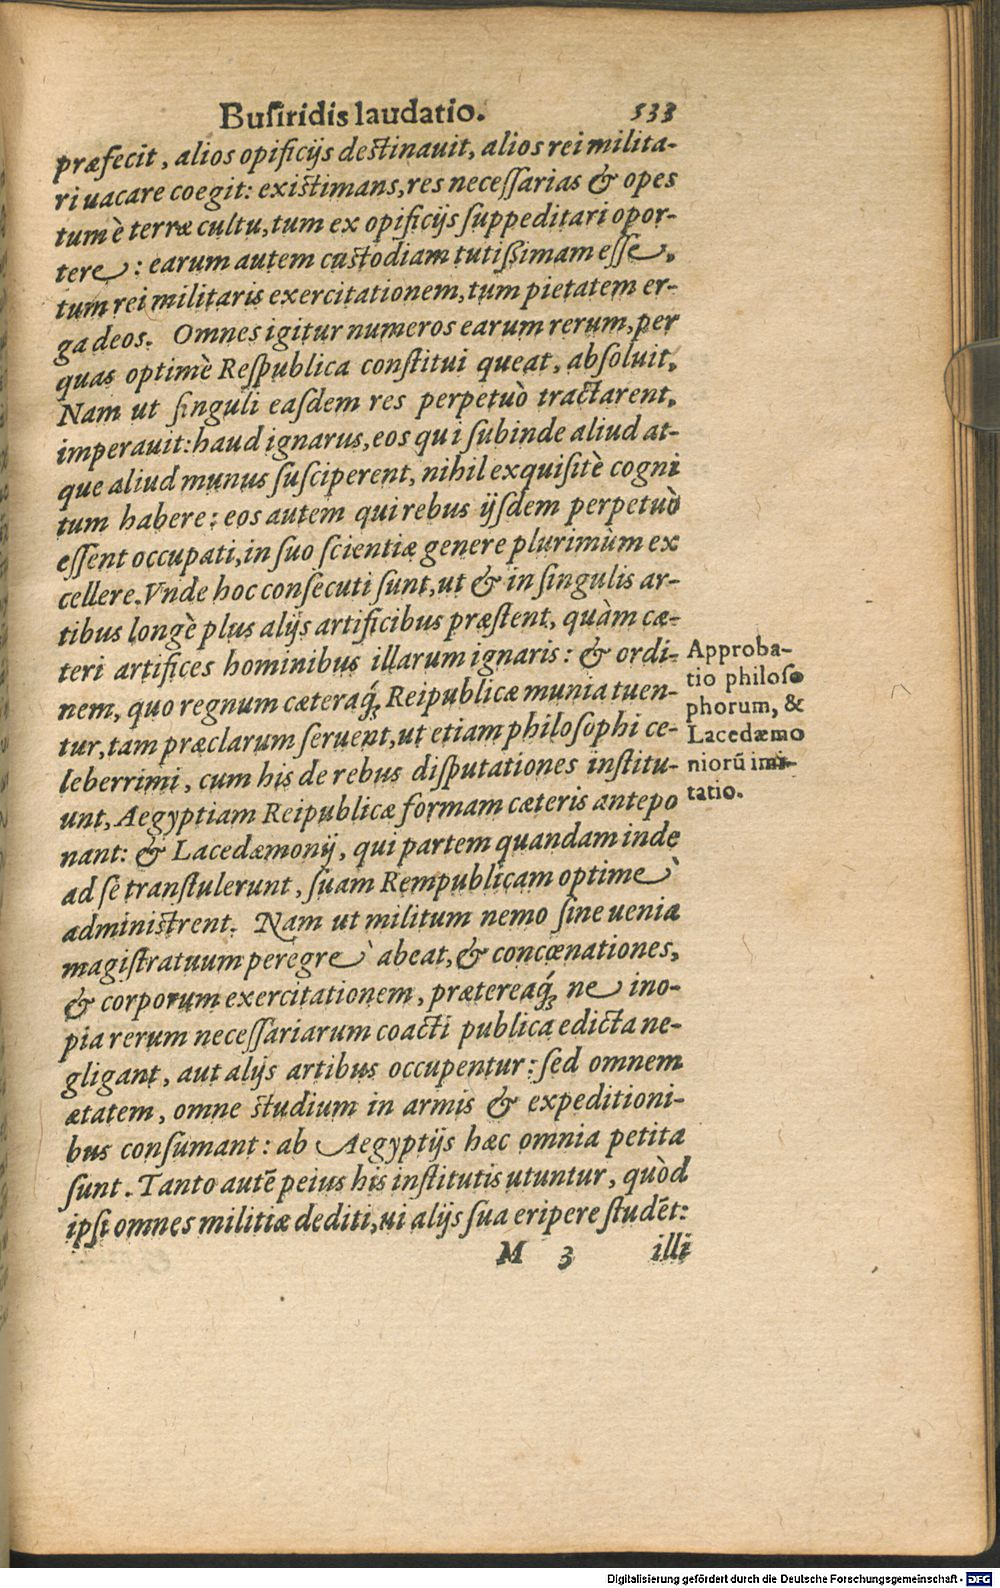 Buſiridis laudatio. 533
præfecit, alios opificijs deſtinauit, alios rei milita-
ri uacare coegit: exiſtimans, res neceſſarias & opes
tum è terræ cultu, tum ex opificijs ſuppeditari opor-
tere: earum autem cuſtodiam tutiſſimam eſſe,
tum rei militaris exercitationem, tum pietatem er-
ga deos. Omnes igitur numeros earum rerum, per
quas optimè Reſpublica conſtitui queat, abſoluit.
Nam ut ſinguli eaſdem res perpetuò tractarent,
imperauit: haud ignarus, eos qui ſubinde aliud at-
que aliud munus ſuſciperent, nihil exquiſitè cogni
tum habere: eos autem qui rebus ijſdem perpetuò
eſſent occupati, in ſuo ſcientiæ genere plurimùm ex
cellere. Vnde hoc conſecuti ſunt, ut & in ſingulis ar-
tibus longè plus alijs artificibus præſtent, quàm cæ-
teri artifices hominibus illarum ignaris: & ordi-
nem, quo regnum cæteraq́; Reipublicæ munia tuen-
tur, tam præclarum ſeruent, ut etiam philoſophi ce-
leberrimi, cum his de rebus diſputationes inſtitu-
unt, Aegyptiam Reipublicæ formam cæteris antepo
nant: & Lacedæmonij, qui partem quandam inde
ad ſe tranſtulerunt, ſuam Rempublicam optimè
adminiſtrent. Nam ut militum nemo ſine uenia
magiſtratuum peregrè abeat, & concœnationes,
& corporum exercitationem, prætereaq́; ne ino-
pia rerum neceſſariarum coacti publica edicta ne-
gligant, aut alijs artibus occupentur: ſed omnem
ætatem, omne ſtudium in armis & expeditioni-
bus conſumant: ab Aegyptijs hæc omnia petita
ſunt. Tanto autē peius his inſtitutis utuntur, quòd
ipſi omnes militiæ dediti, ui alijs ſua eripere ſtudēt:
M 3 illi
Approba-
tio philoſo
phorum, &
Lacedæmo
niorū imi-
tatio.
Digitalisierung gefördert durch die Deutsche Forschungsgemeinschaft - DFG